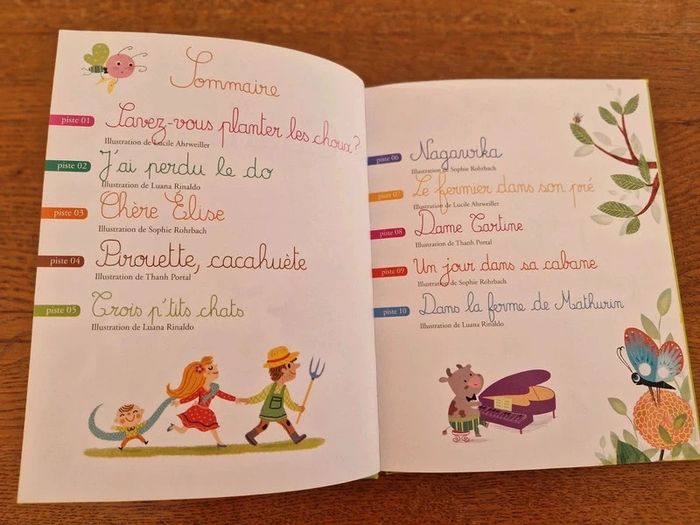 Sommaire
piste 01 Savez-vous planter les choux?
Illustration de Lucile Ahrweiller
piste 02 J'ai perdu le do
Illustration de Luana Rinaldo
piste 03 Chère Élise
Illustration de Sophie Rohrbach
piste 04 Pirouette, cacahuète
Illustration de Thanh Portal
piste 05 Trois p'tits chats
Illustration de Luana Rinaldo
piste 06 Nagawika
Illustration de Sophie Rohrbach
piste 07 Le fermier dans son pré
Illustration de Lucile Ahrweiller
piste 08 Dame Tartine
Illustration de Thanh Portal
piste 09 Un jour dans sa cabane
Illustration de Sophie Rohrbach
piste 10 Dans la ferme de Mathurin
Illustration de Luana Rinaldo